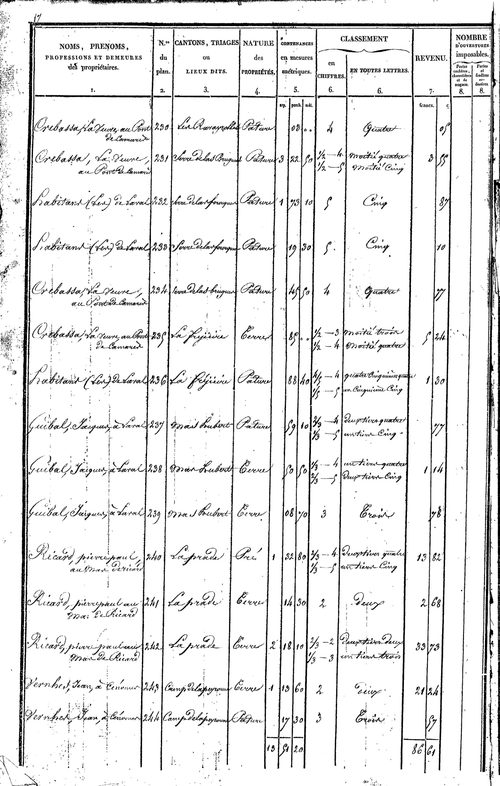 17
NOMS, PRENOMS,
PROFESSIONS ET DEMEURES
des propriétaires.
1.
N.os
du
plan.
2.
CANTONS, TRIAGES
ou
LIEUX DITS.
3.
NATURE
des
PROPRIÉTÉS.
4.
CONTENANCES
en mesures
métriques.
5.
CLASSEMENT
en
CHIFFRES.
6.
EN TOUTES LETTRES.
6.
REVENU.
7.
NOMBRE
D'OUVERTURES
imposables.
8.
8.
francs. c.
Crebassa, La Veuve, au Pont 230 Pature 03 .. 4 Quatre 05
de Camarés
Crebassa, La Veuve, 231 Serre de las Pature 3 22 50 1/2 - 4 Moitié quatre 3 55
au Pont de Camarés 1/2 - 5 Moitié Cinq
habitans (Les) de Laval 232 Pature 1 73 10 5 Cinq 87
habitans (Les) de Laval 233 Pature 19 30 5 Cinq 10
Crebassa, La Veuve, 234 Serre de las Pature 45 50 4 Quatre 77
au Pont de Camarés
Crebassa, La Veuve, au Pont 235 Terre 85 .. 1/2 - 3 moitié trois 5 24
de Camarés 1/2 - 4 Moitié quatre
habitans (Les) de Laval 236 Pature 88 40 4/5 - 4 quatre Cinquième quatre 1 30
1/5 - 5 un Cinquième Cinq
Guibal, Jacques, à Laval 237 Mas Pature 59 10 2/3 - 4 deux tiers quatre 77
1/3 - 5 un tiers Cinq
Guibal, Jacques, à Laval 238 Mas Terre 50 50 1/3 - 4 un tiers quatre 1 14
2/3 - 5 Deux tiers Cinq
Guibal, Jacques, à Laval 239 Mas Terre 08 70 3 Trois 78
Ricard, pierre paul 240 La prade Pré 1 22 80 2/3 - 4 deux tiers quatre 13 82
au Mas de Ricard 1/3 - 5 un tiers Cinq
Ricard, pierre paul au 241 La prade Terre 14 30 2 deux 2 68
Mas de Ricard
Ricard, pierre paul au 242 La prade Terre 2 18 10 2/3 - 2 deux tiers deux 33 73
Mas de Ricard 1/3 - 3 un tiers trois
Vernhes, Jean, à 243 Terre 1 13 60 2 deux 21 24
Vernhes, Jean, à 244 Pature 17 30 3 Trois 57
13 51 20 86 61